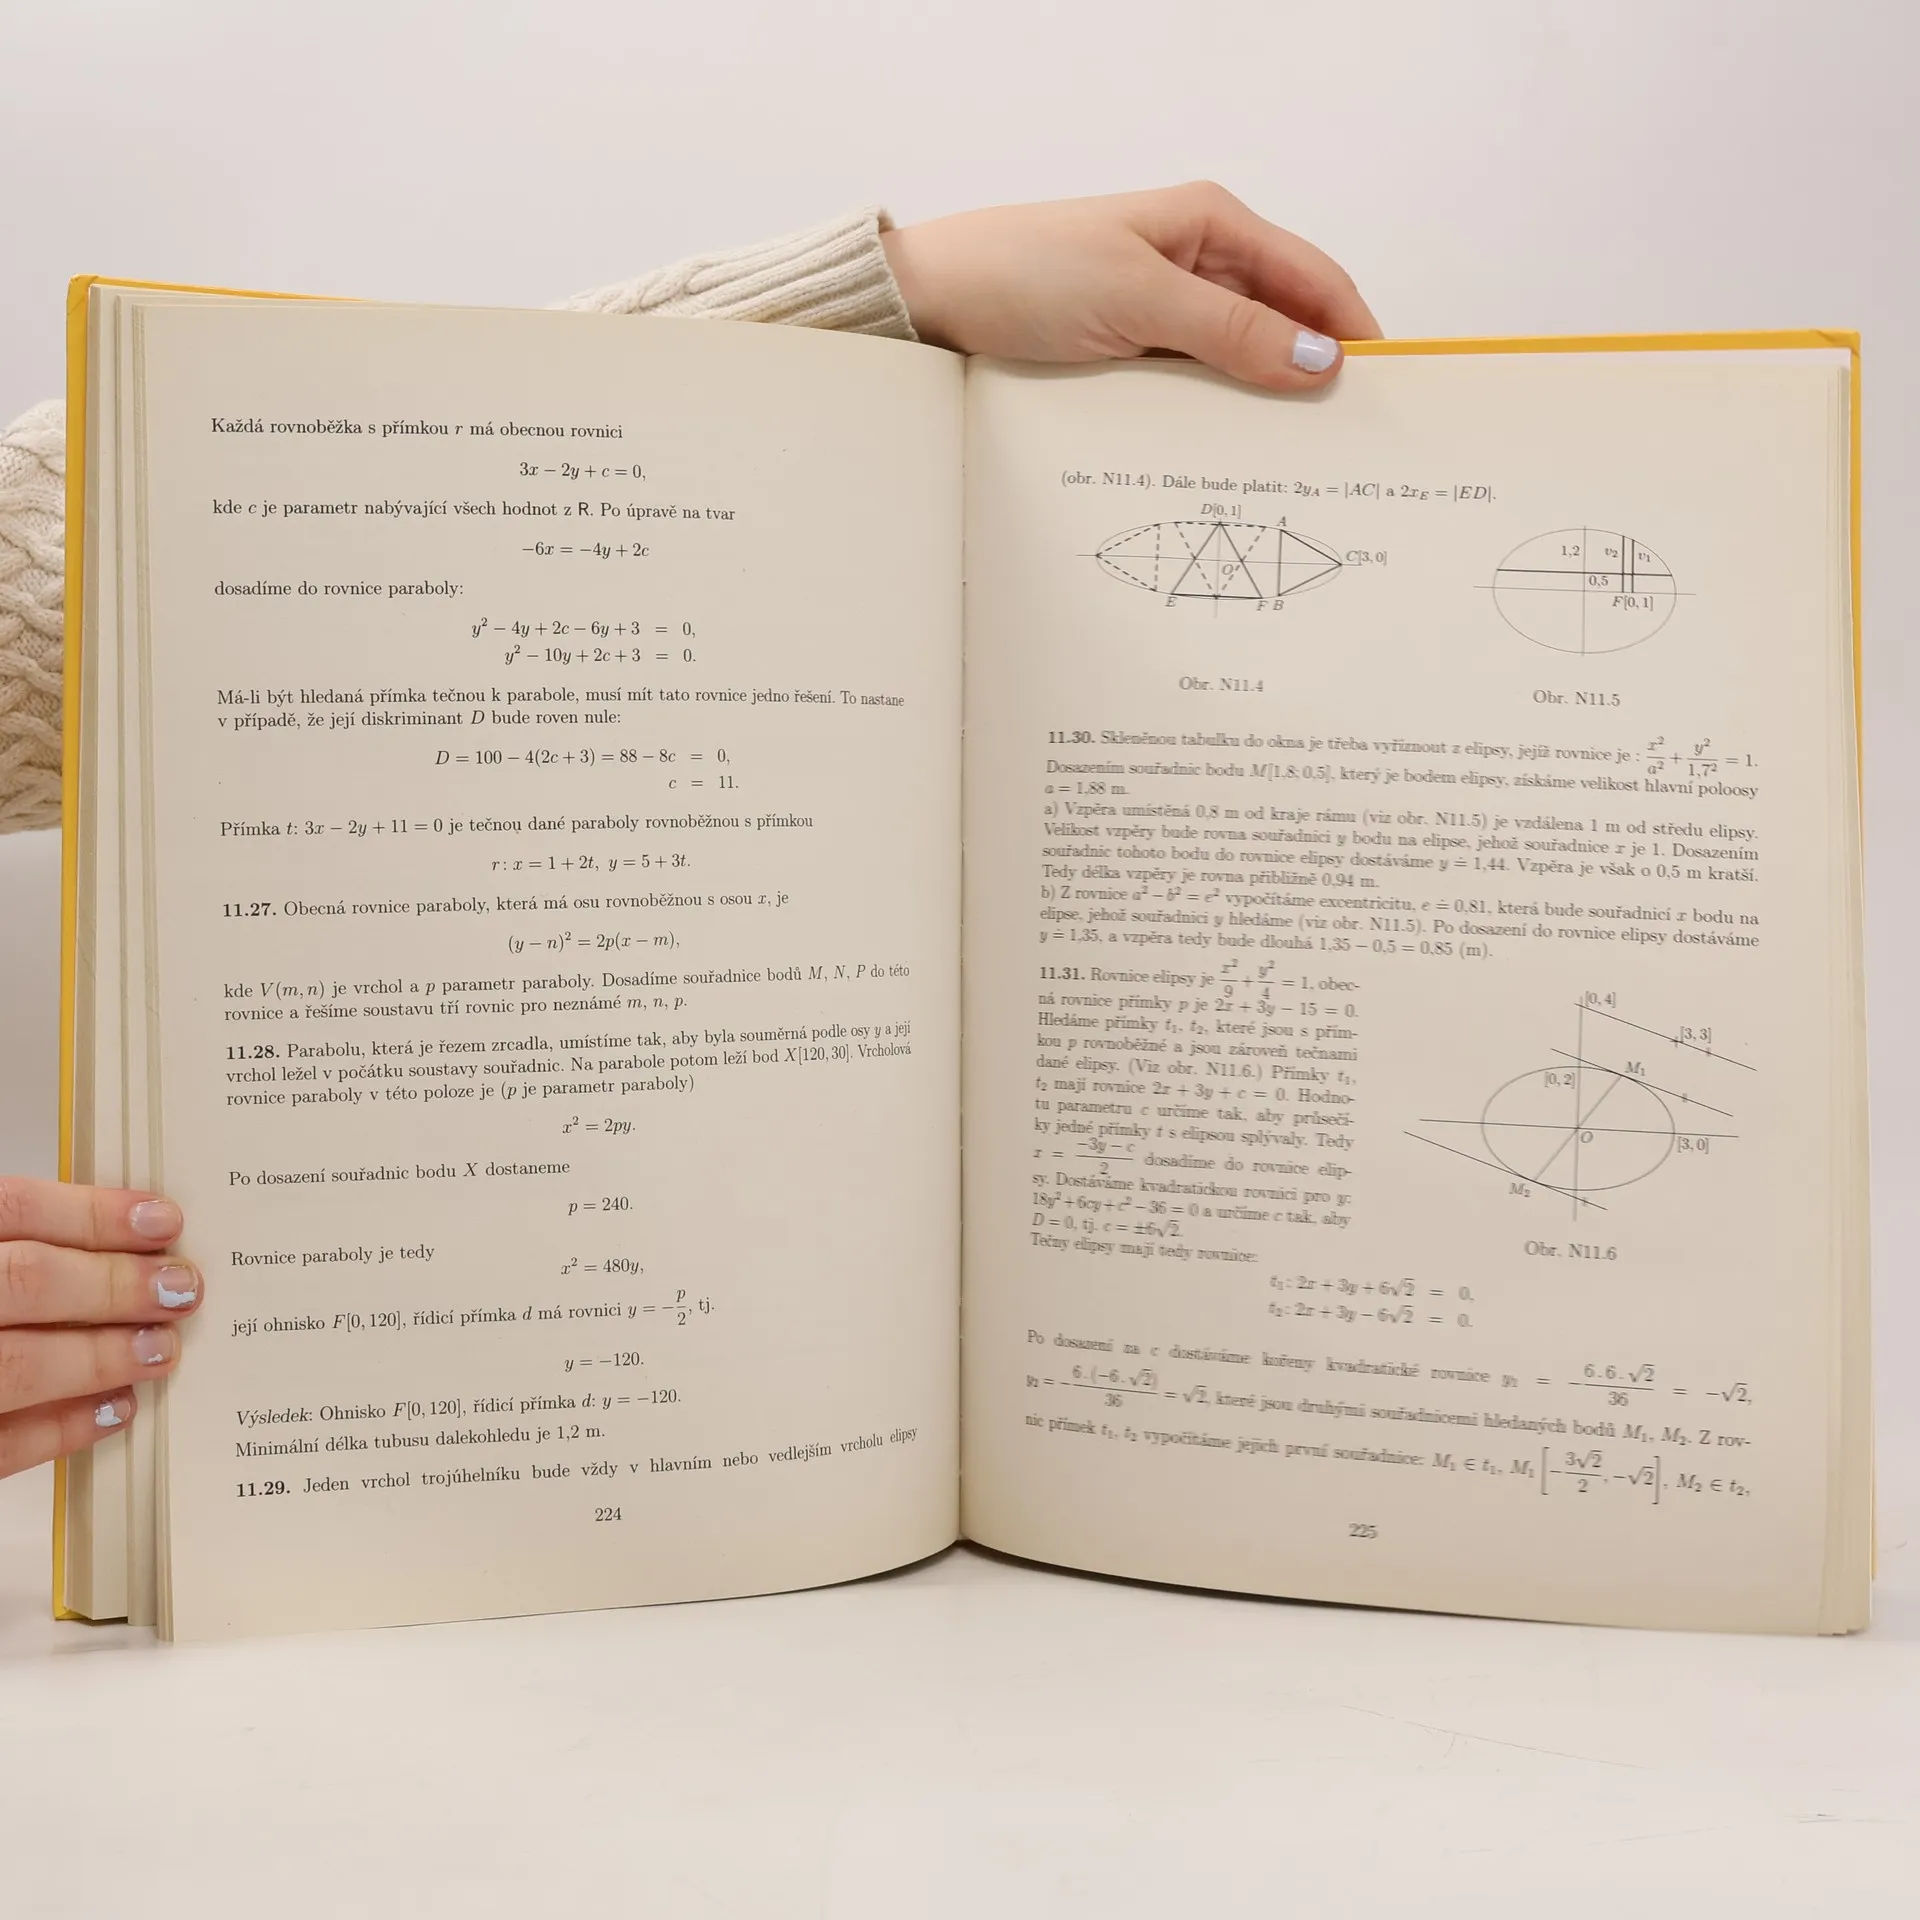 Každá rovnoběžka s přímkou r má obecnou rovnici
3x − 2y + c = 0,
kde c je parametr nabývající všech hodnot z R. Po úpravě na tvar
−6x = −4y + 2c
dosadíme do rovnice paraboly:
y² − 4y + 2c − 6y + 3 = 0,
y² − 10y + 2c + 3 = 0.
Má-li být hledaná přímka tečnou k parabole, musí mít tato rovnice jedno řešení. To nastane
v případě, že její diskriminant D bude roven nule:
D = 100 − 4(2c + 3) = 88 − 8c = 0,
c = 11.
Přímka t: 3x − 2y + 11 = 0 je tečnou dané paraboly rovnoběžnou s přímkou
r: x = 1 + 2t, y = 5 + 3t.
11.27. Obecná rovnice paraboly, která má osu rovnoběžnou s osou x, je
(y − n)² = 2p(x − m),
kde V(m, n) je vrchol a p parametr paraboly. Dosadíme souřadnice bodů M, N, P do této
rovnice a řešíme soustavu tří rovnic pro neznámé m, n, p.
11.28. Parabolu, která je řezem zrcadla, umístíme tak, aby byla souměrná podle osy y a její
vrchol ležel v počátku soustavy souřadnic. Na parabole potom leží bod X[120, 30]. Vrcholová
rovnice paraboly v této poloze je (p je parametr paraboly)
x² = 2py.
Po dosazení souřadnic bodu X dostaneme
p = 240.
Rovnice paraboly je tedy
x² = 480y,
její ohnisko F[0, 120], řídicí přímka d má rovnici y = −p/2, tj.
y = −120.
Výsledek: Ohnisko F[0, 120], řídicí přímka d: y = −120.
Minimální délka tubusu dalekohledu je 1,2 m.
11.29. Jeden vrchol trojúhelníku bude vždy v hlavním nebo vedlejším vrcholu elipsy
224
(obr. N11.4). Dále bude platit: 2y_A = |AC| a 2x_E = |ED|.
D[0, 1]
A
C[3, 0]
O
E
F B
Obr. N11.4
1,2
v₂
v₁
0,5
F[0, 1]
Obr. N11.5
11.30. Skleněnou tabulku do okna je třeba vyříznout z elipsy, jejíž rovnice je : x²/a² + y²/1,7² = 1.
Dosazením souřadnic bodu M[1,8; 0,5], který je bodem elipsy, získáme velikost hlavní poloosy
a = 1,88 m.
a) Vzpěra umístěná 0,8 m od kraje rámu (viz obr. N11.5) je vzdálena 1 m od středu elipsy.
Velikost vzpěry bude rovna souřadnici y bodu na elipse, jehož souřadnice x je 1. Dosazením
souřadnic tohoto bodu do rovnice elipsy dostáváme y ≐ 1,44. Vzpěra je však o 0,5 m kratší.
Tedy délka vzpěry je rovna přibližně 0,94 m.
b) Z rovnice a² − b² = e² vypočítáme excentricitu, e ≐ 0,81, která bude souřadnicí x bodu na
elipse, jehož souřadnici y hledáme (viz obr. N11.5). Po dosazení do rovnice elipsy dostáváme
y ≐ 1,35, a vzpěra tedy bude dlouhá 1,35 − 0,5 = 0,85 (m).
11.31. Rovnice elipsy je x²/9 + y²/4 = 1, obec-
ná rovnice přímky p je 2x + 3y − 15 = 0.
Hledáme přímky t₁, t₂, které jsou s přím-
kou p rovnoběžné a jsou zároveň tečnami
dané elipsy. (Viz obr. N11.6.) Přímky t₁,
t₂ mají rovnice 2x + 3y + c = 0. Hodno-
tu parametru c určíme tak, aby průsečí-
ky jedné přímky t s elipsou splývaly. Tedy
x = (−3y − c)/2 dosadíme do rovnice elip-
sy. Dostáváme kvadratickou rovnici pro y:
18y² + 6cy + c² − 36 = 0 a určíme c tak, aby
D = 0, tj. c = ±6√2.
Tečny elipsy mají tedy rovnice:
[0, 4]
[3, 3]
M₁
[0, 2]
O
[3, 0]
M₂
Obr. N11.6
t₁: 2x + 3y + 6√2 = 0,
t₂: 2x + 3y − 6√2 = 0.
Po dosazení za c dostáváme kořeny kvadratické rovnice y₁ = −(6.6.√2)/36 = −√2,
y₂ = −(6.(−6.√2))/36 = √2, které jsou druhými souřadnicemi hledaných bodů M₁, M₂. Z rov-
nic přímek t₁, t₂ vypočítáme jejich první souřadnice: M₁ ∈ t₁, M₁[−3√2/2, −√2], M₂ ∈ t₂,
225